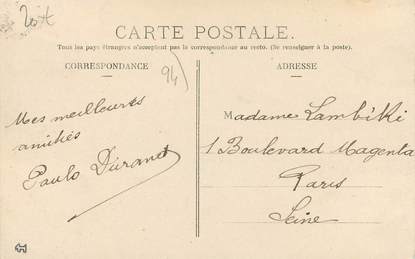 20f
CARTE POSTALE.
Tous les pays étrangers n'acceptent pas la correspondance au recto. (Se renseigner à la poste).
CORRESPONDANCE
94)
Mes meilleures
amitiés
Paulo Durand
ADRESSE
Madame Lambiki
1 Boulevard Magenta
Paris
Seine